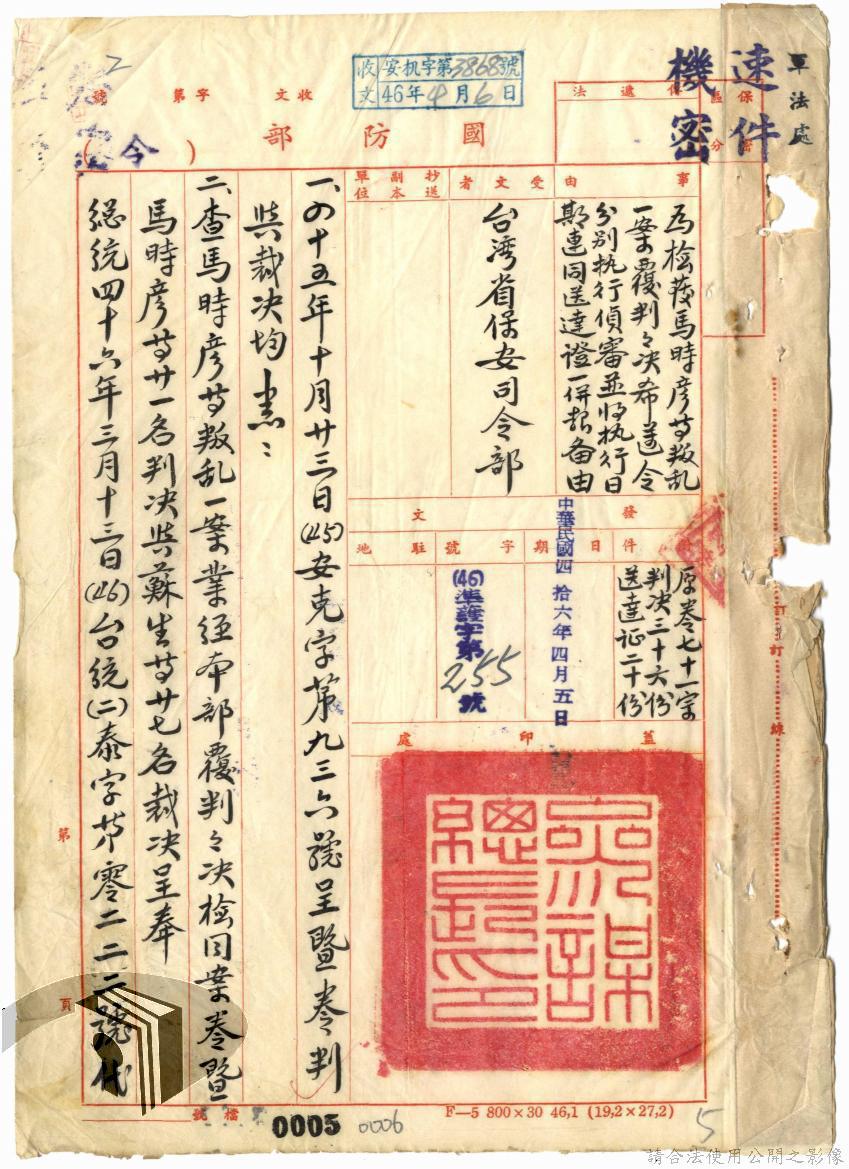 軍法處
速件
機密
收 安机字第3868號
文 46年4月6日
收文 字第 號
國防部(令)
保密區分
傳遞法
事由
為檢發馬時彥等叛乱
一案覆判判决希遵令
分別执行偵審並將执行日
期連同送達證一併報备由
受文者
台湾省保安司令部
抄送副本單位
發文
附件
原卷七十一宗
判决三十六份
送達证二十份
日期
中華民國四拾六年四月五日
字號
(46)準護字第255號
駐地
蓋印處
參謀總長印
一、四十五年十月廿三日(45)安克字第九三六號呈暨卷判
與裁决均悉：
二、查馬時彥等叛乱一案業經本部覆判判决檢同案卷暨
馬時彥等廿一名判决與蘇生等廿七名裁决呈奉
總統四十六年三月十三日(46)台統(二)泰字第零二二二號代
訂線
第 頁
檔號
0005
0006
F—5 800×30 46,1 (19,2×27,2)
5
2
請合法使用公開之影像